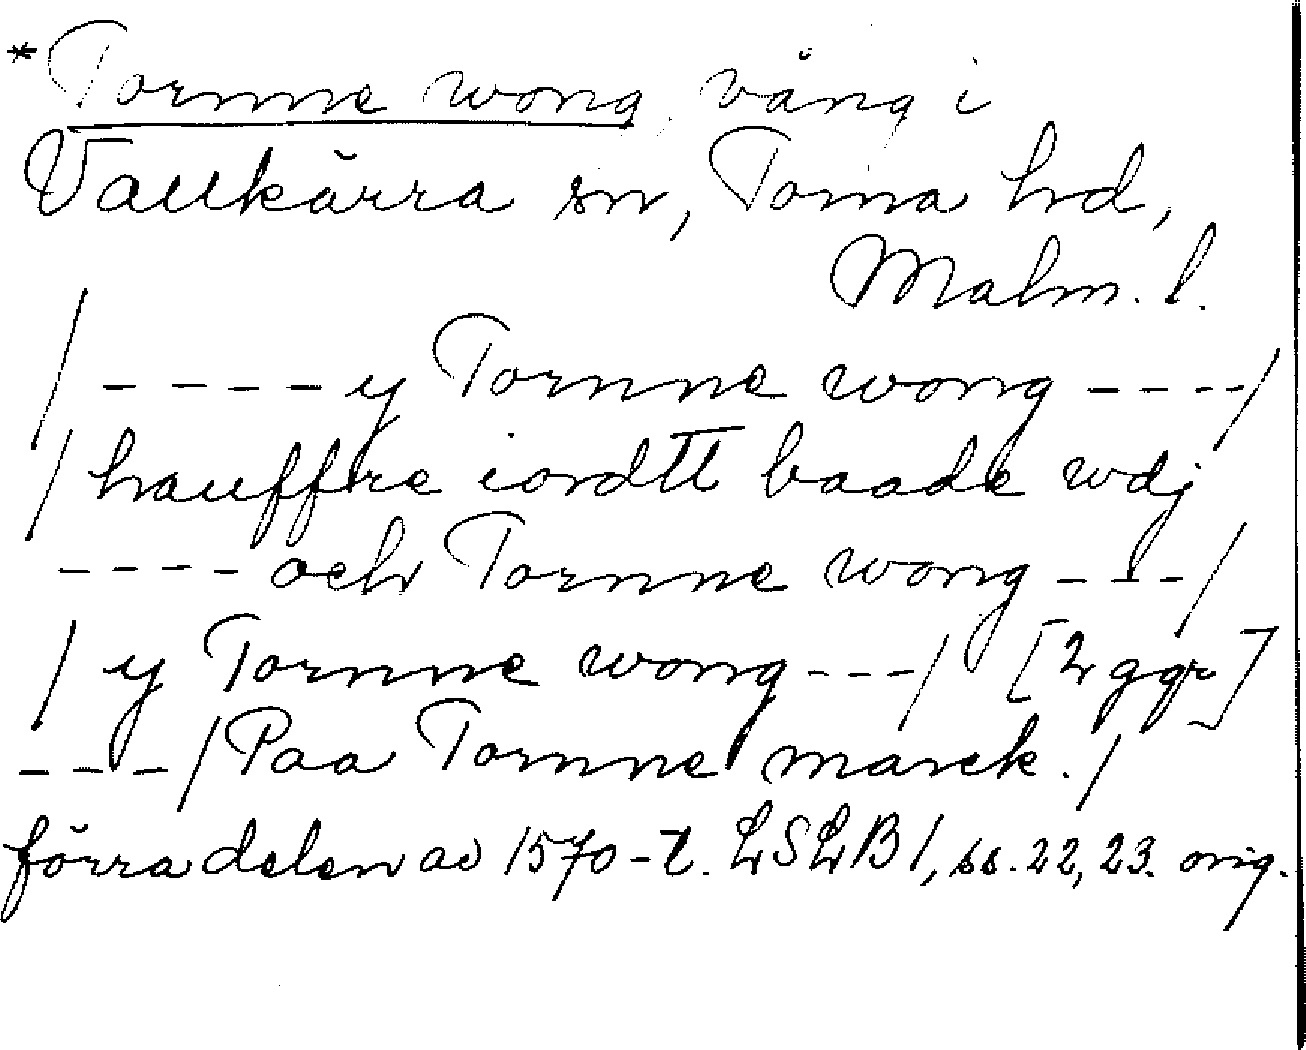 *Tornne wong, vång i
Vallkärra sn, Torna hd,
Malm. l.
/----y Tornne wong----/
/hauffre iordtt baade wdj
----och Tornne wong---/
/y Tornne wong---/ [2 ggr]
---/Paa Tornne marck./
förra delen av 1570-t. LSLB 1, ss. 22, 23. orig.